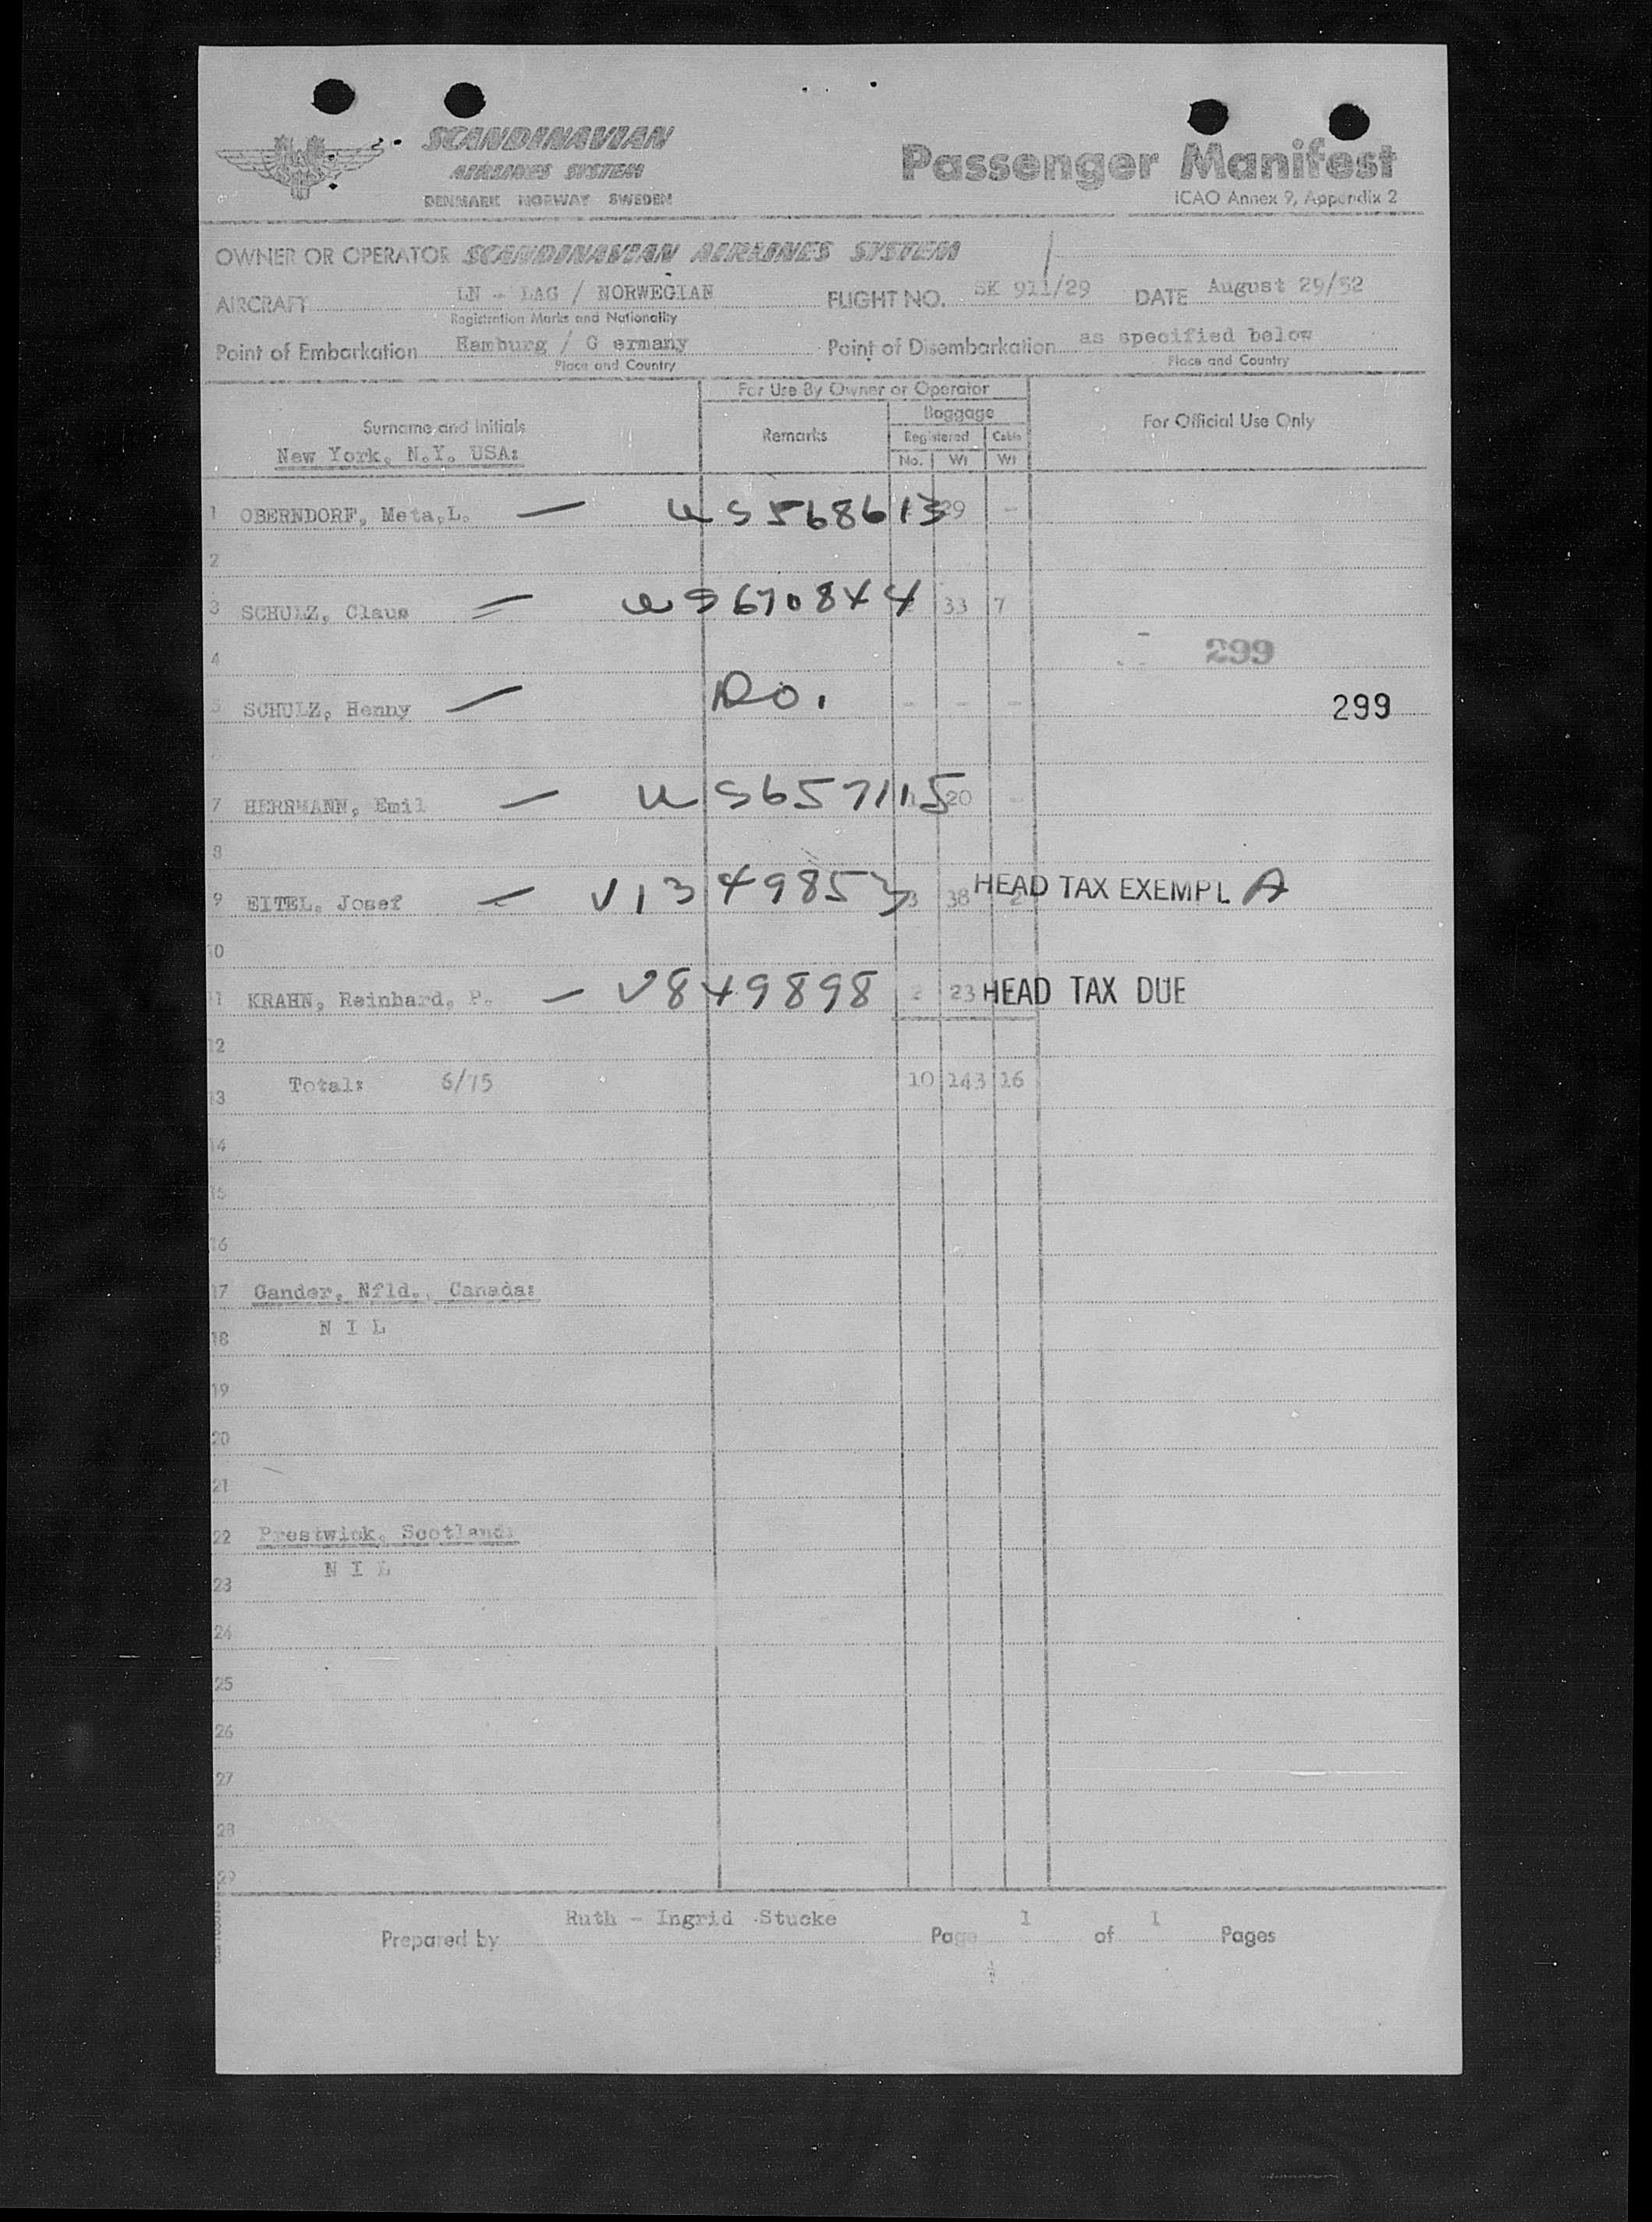 SCANDINAVIAN
AIRLINES SYSTEM
DENMARK NORWAY SWEDEN
Passenger Manifest
ICAO Annex 9, Appendix 2
OWNER OR OPERATOR SCANDINAVIAN AIRLINES SYSTEM
AIRCRAFT LN - LAG / NORWEGIAN FLIGHT NO. SK 911/29 DATE August 29/52
Registration Marks and Nationality
Point of Embarkation Hamburg / G ermany Point of Disembarkation as specified below
Place and Country Place and Country
For Use By Owner or Operator
Surname and Initials Remarks Baggage For Official Use Only
Registered Cabin
New York, N.Y. USA: No. Wt Wt
1 OBERNDORF, Meta,L. — US568613 29 -
2
3 SCHULZ, Claus = US670844 33 7
4 299
5 SCHULZ, Henny — Do. - - - 299
7 HERRMANN, Emil — US657115 20 -
8
9 EITEL, Josef — V1349853 3 38 2 HEAD TAX EXEMPT A
10
11 KRAHN, Reinhard, P. — V849898 2 23 HEAD TAX DUE
12
13 Total: 6/15 10 143 16
14
15
16
17 Gander, Nfld., Canada:
18 N I L
19
20
21
22 Prestwick, Scotland:
23 N I L
24
25
26
27
28
29
Prepared by Ruth - Ingrid Stucke Page 1 of 1 Pages